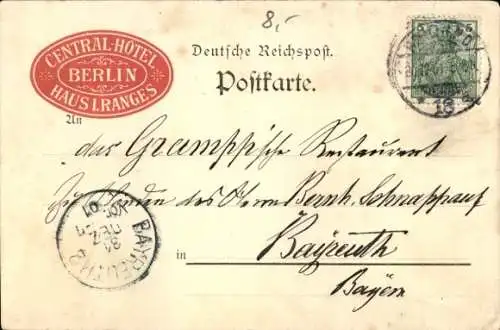 8,-
CENTRAL-HOTEL
BERLIN
HAUS I. RANGES
Deutsche Reichspost.
Postkarte.
An
das Gramppische Restaurant
zu Handen des Herrn Bernh. Schnappauf
in Bayreuth
Bayern
BAYREUTH 2
01